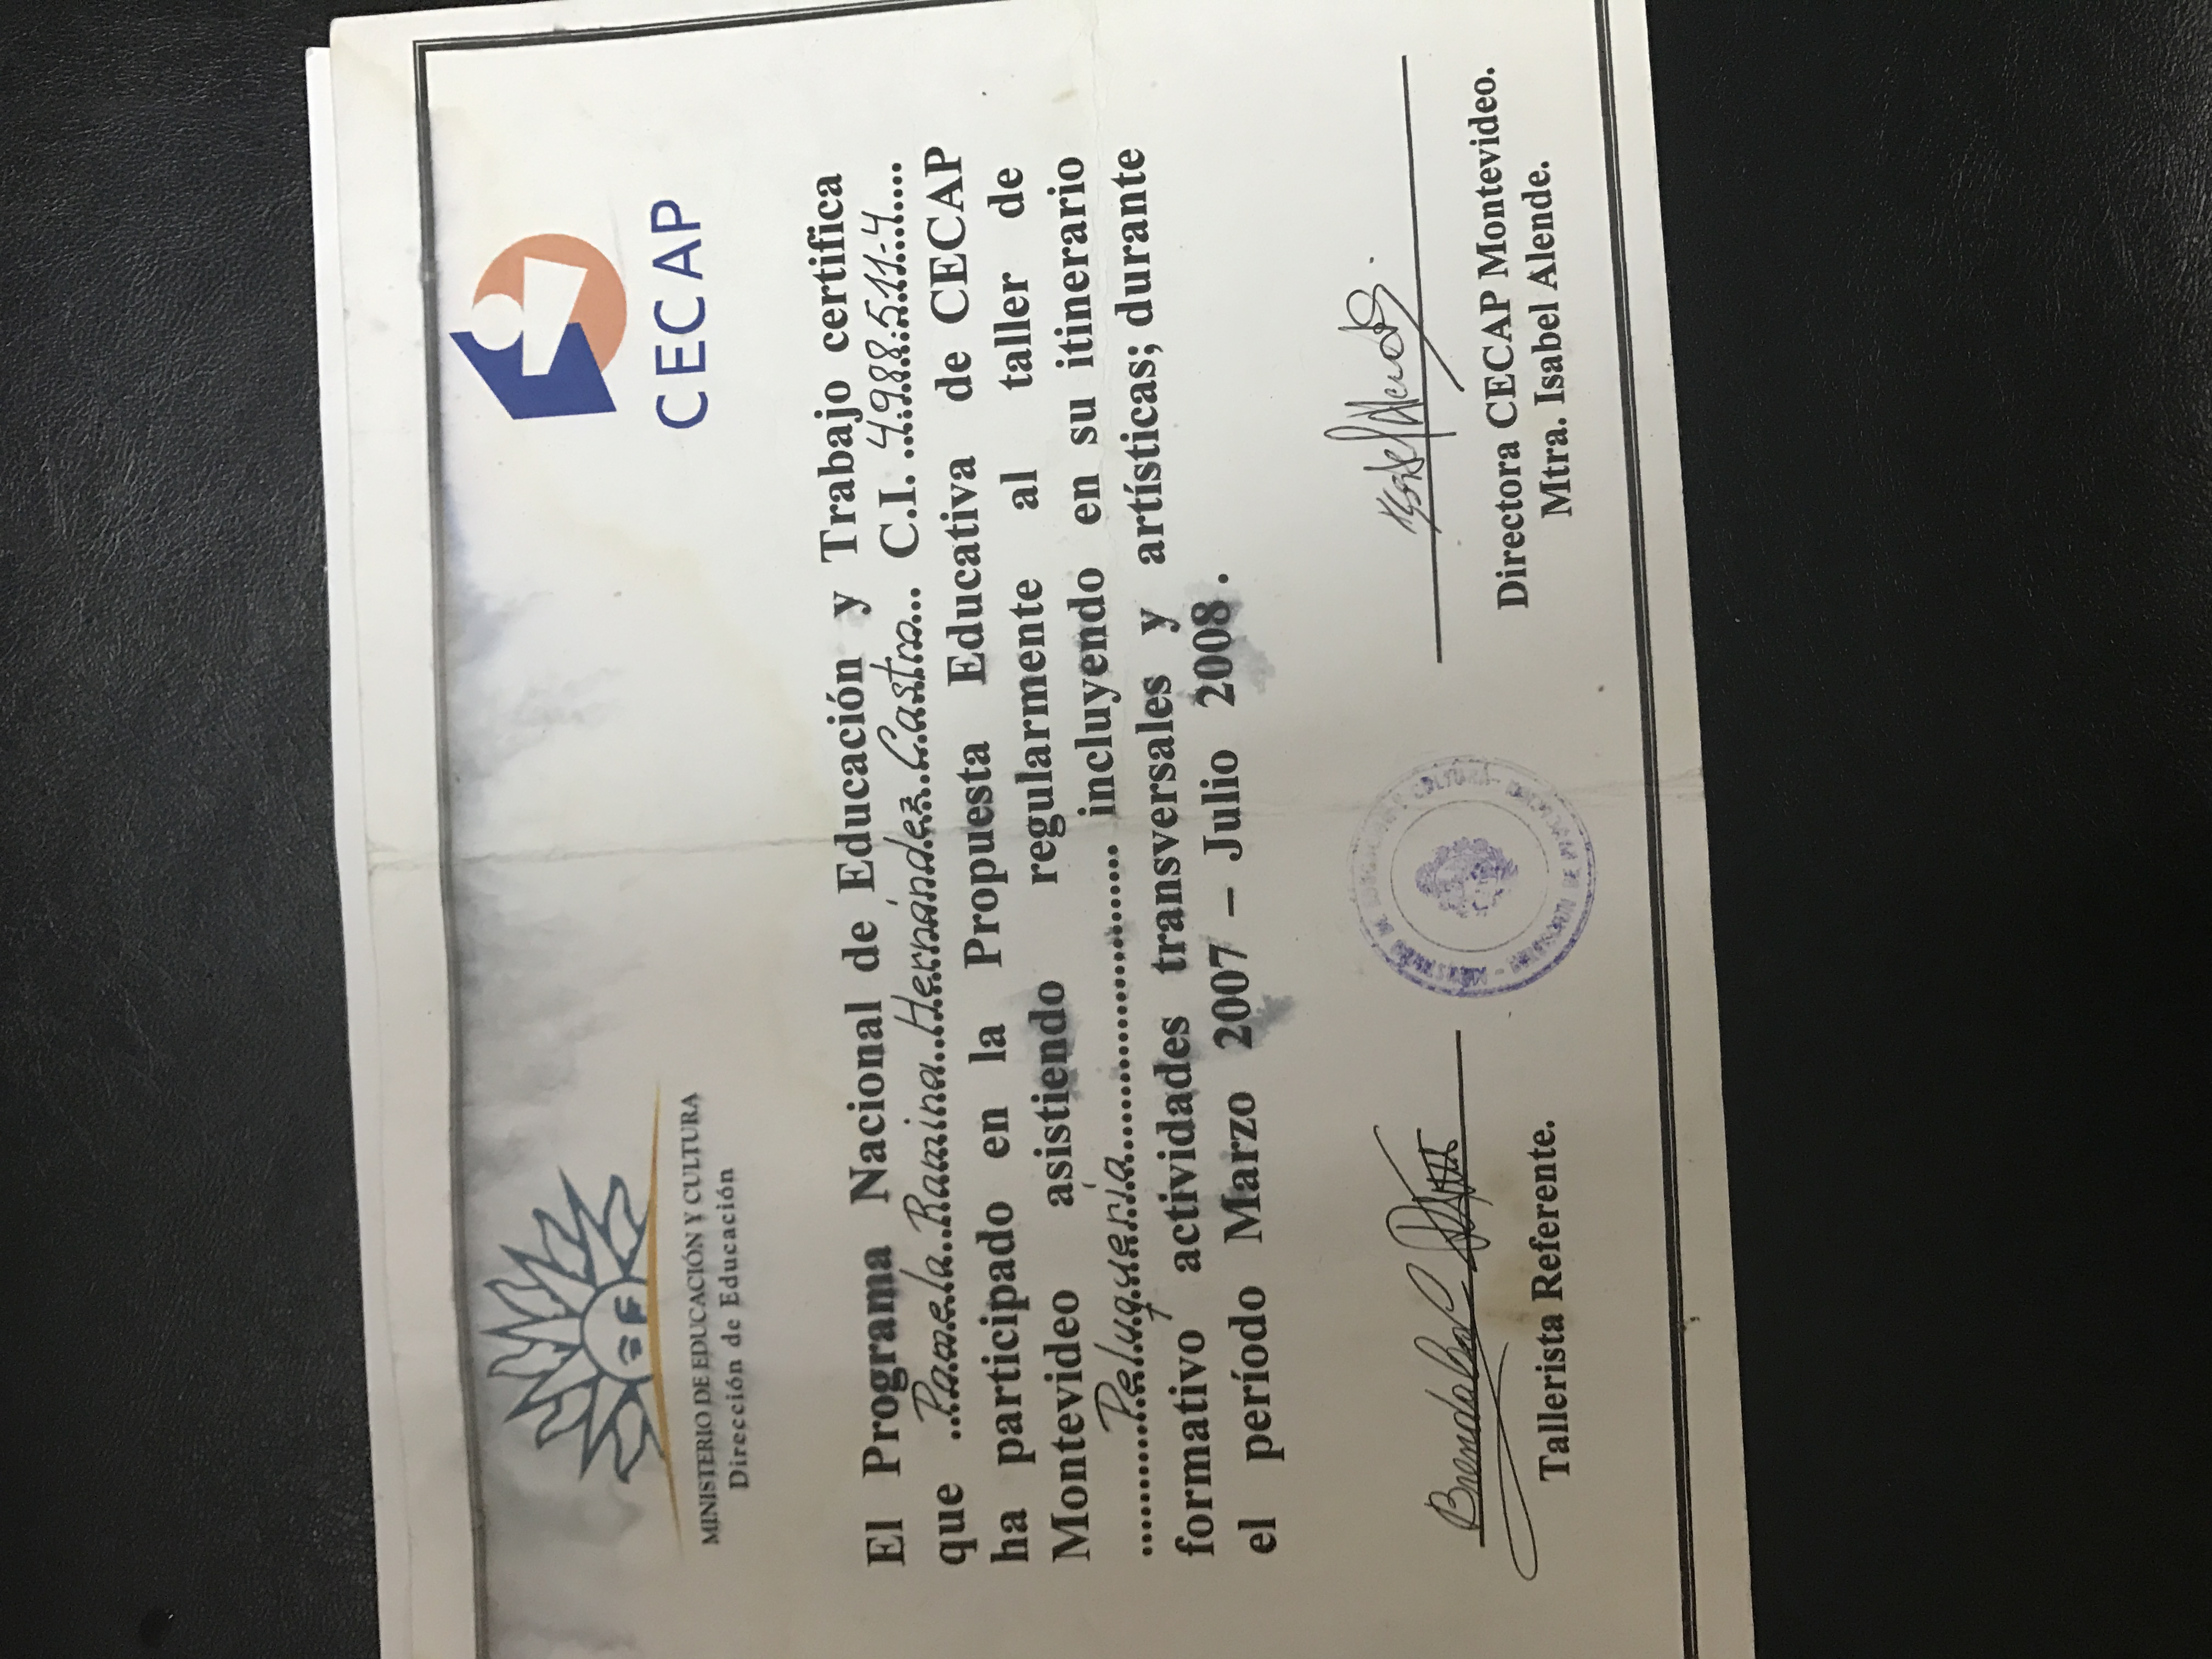 MINISTERIO DE EDUCACIÓN Y CULTURA
Dirección de Educación
CECAP
El Programa Nacional de Educación y Trabajo certifica
que Pamela Ramina Hernández Castro C.I. 4.988.511-4
ha participado en la Propuesta Educativa de CECAP
Montevideo asistiendo regularmente al taller de
Peluquería incluyendo en su itinerario
formativo actividades transversales y artísticas; durante
el período Marzo 2007 – Julio 2008.
Brenda
Tallerista Referente.
MINISTERIO DE EDUCACION Y CULTURA
DE EDUCACION
Isabel Alende
Directora CECAP Montevideo.
Mtra. Isabel Alende.